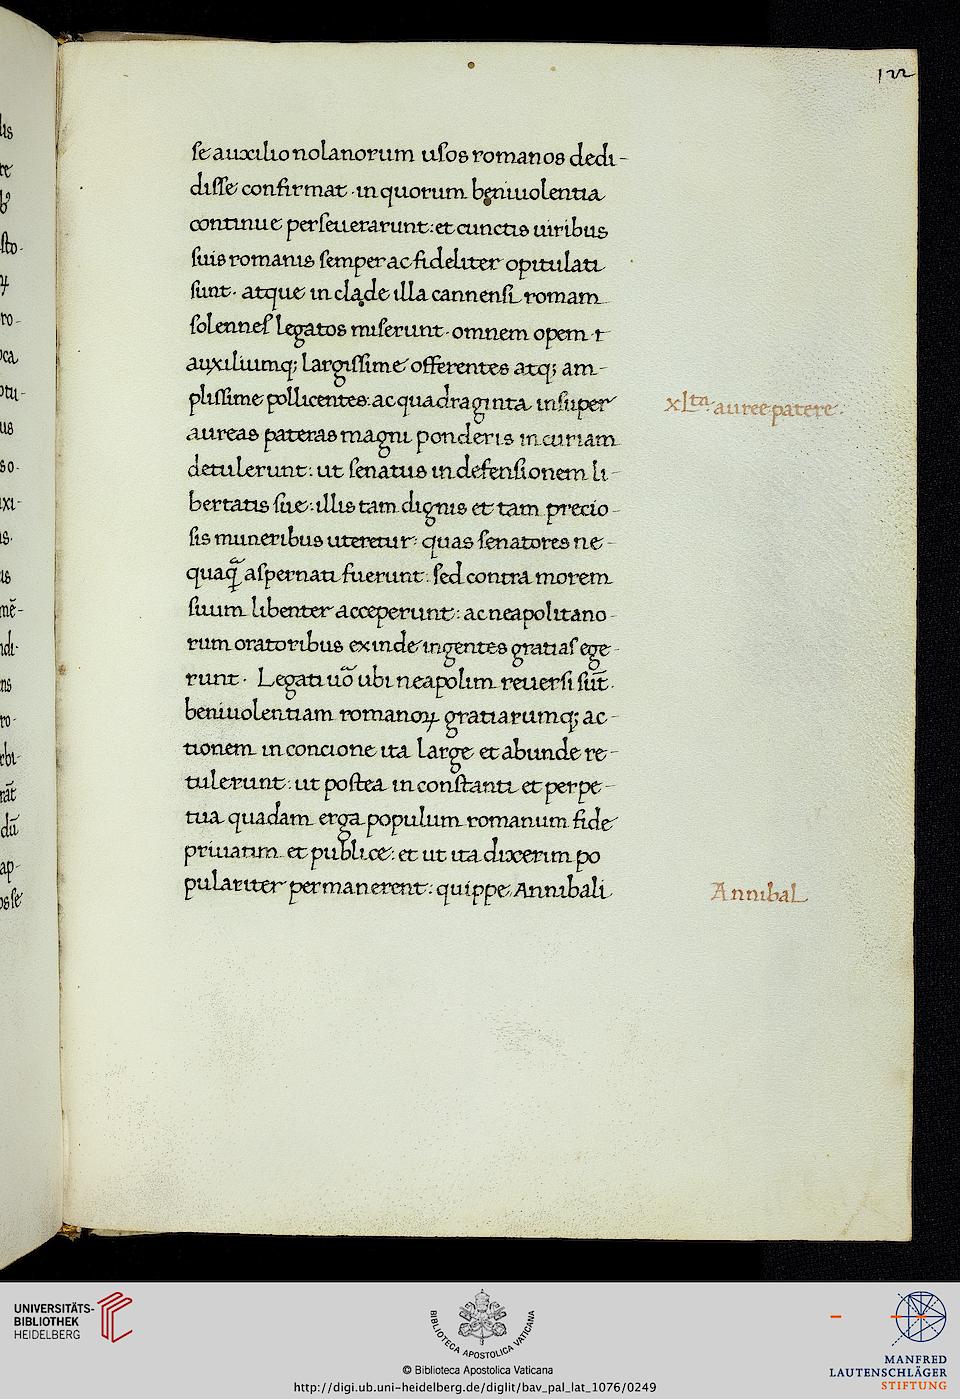 122
se auxilio nolanorum usos romanos dedi-
disse confirmat · in quorum beniuolentia
continue perseuerarunt: et cunctis uiribus
suis romanis semper ac fideliter opitulati
sunt · atque in clade illa cannensi romam
solennes legatos miserunt · omnem opem ·t
auxiliumq; largissime offerentes atq; am-
plissime pollicentes: ac quadraginta insuper
xLta auree patere·
aureas pateras magni ponderis in curiam
detulerunt: ut senatus in defensionem li-
bertatis sue: illis tam dignis et tam precio-
sis muneribus uteretur: quas senatores ne-
quaq̃ aspernati fuerunt: sed contra morem
suum libenter acceperunt: ac neapolitano-
rum oratoribus exinde ingentes gratias ege-
runt · Legati uo᷃ ubi neapolim reuersi su᷃t·
beniuolentiam romanoꝝ gratiarumq; ac-
tionem in concione ita large et abunde re-
tulerunt: ut postea in constanti et perpe-
tua quadam erga populum romanum fide
priuatim et publice: et ut ita dixerim po
pulariter permanerent: quippe Annibali
Annibal
lis
re
b⁹
sto-
ꝝ
ro-
oca
otu-
us
so-
uxi-
is·
us
mē-
ndi-
ns
ro-
rbi-
rāt
dū
ap-
os se
UNIVERSITÄTS-
BIBLIOTHEK
HEIDELBERG
BIBLIOTECA APOSTOLICA VATICANA
© Biblioteca Apostolica Vaticana
http://digi.ub.uni-heidelberg.de/diglit/bav_pal_lat_1076/0249
MANFRED
LAUTENSCHLÄGER
STIFTUNG